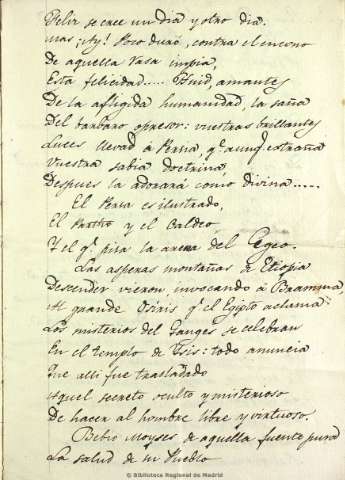 Felix se cree un dia y otro dia.
Mas ¡Ay! Poco duró, contra el encono
De aquella raza impia,
Esta felicidad..... Huid, amantes
De la afligida humanidad, la saña
Del barbaro opresor: vuestras brillantes
Luces llevad á Persia, q.e aunq.e extraña
Vuestra sabia doctrina,
Despues la adorará como divina.....
El Persa es ilustrado,
El Partho y el Caldeo,
Y el q.e pisa la arena del Egeo.
Las asperas montañas á Etiopia
Descender vieron invocando á Bramma,
Al grande Osiris q.e el Egipto aclama:
Los misterios del Ganges se celebran
En el templo de Isis: todo anuncia
Que alli fue trasladado
Aquel secreto oculto y misterioso
De hacer al hombre libre y virtuoso.
Bebio Moyses de aquella fuente pura
La salud de su Pueblo
© Biblioteca Regional de Madrid